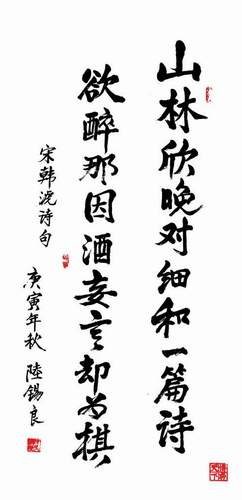 山林欣晚对细和一篇诗
欲醉那因酒妄言却为棋
宋韩淲诗句
庚寅年秋 陆锡良